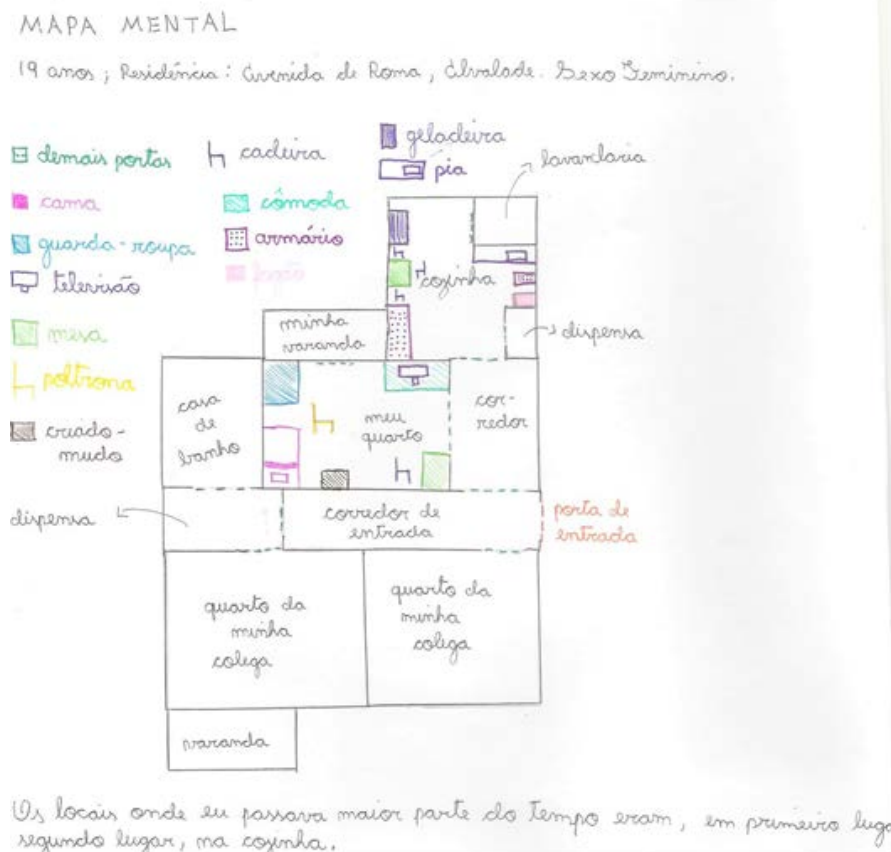 MAPA MENTAL
19 anos ; Residência : Avenida de Roma, Alvalade. Sexo Feminino.
demais portas
cadeira
geladeira
pia
lavanlaria
cama
cômoda
guarda-roupa
armário
televisão
fogão
mesa
poltrona
criado-
mudo
cozinha
dispensa
minha
varanda
casa
de
banho
meu
quarto
cor-
redor
dispensa
corredor de
entrada
porta de
entrada
quarto da
minha
colega
quarto da
minha
colega
varanda
Os locais onde eu passava maior parte do tempo eram, em primeiro
segundo lugar, na cozinha.